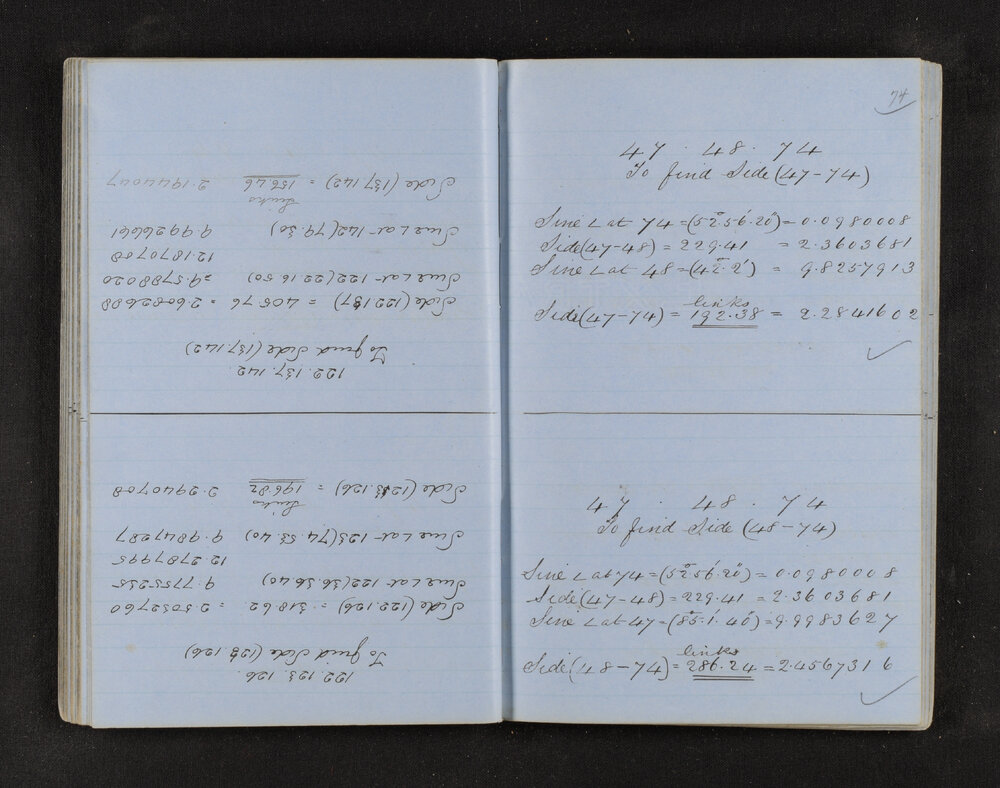 122. 123. 126.
To find Side (123. 126)
Side (122.126) = 318.62 = 2.5032760
Sine ∠ at 122 (36.36.40) 9.7755235
12.2787995
Sine ∠ at 123 (74.53.40) 9.9847287
links
Side (123.126) = 196.82 2.2940708
122. 137. 142
To find Side (137.142)
Side (122.137) = 405.76 = 2.6082688
Sine ∠ at 122 (22.16.50) =9.5788020
12.1870708
Sine ∠ at 142 (79.30) 9.9926661
links
Side (137.142) = 156.46 2.1944047
74
47 . 48 . 74
To find Side (47-74)
Sine ∠ at 74 = (52°.56'.20") = 0.0980008
Side (47-48) = 229.41 = 2.3603681
Sine ∠ at 48 = (42°.2') = 9.8257913
links
Side (47-74) = 192.38 = 2.2841602
47 . 48 . 74
To find Side (48-74)
Sine ∠ at 74 = (52°.56'.20") = 0.0980008
Side (47-48) = 229.41 = 2.3603681
Sine ∠ at 47 = (85°.1'.40") = 9.9983627
links
Side (48-74) = 286.24 = 2.4567316